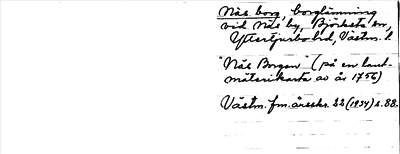 Näs borg, borglämning
vid Näs by, Björksta sn,
Yttertjurbo hd, Västm. l.
"Näs Borgen" (på en lant-
mäterikarta av år 1756)
Västm. fm. årsskr. 22 (1934) s. 88.